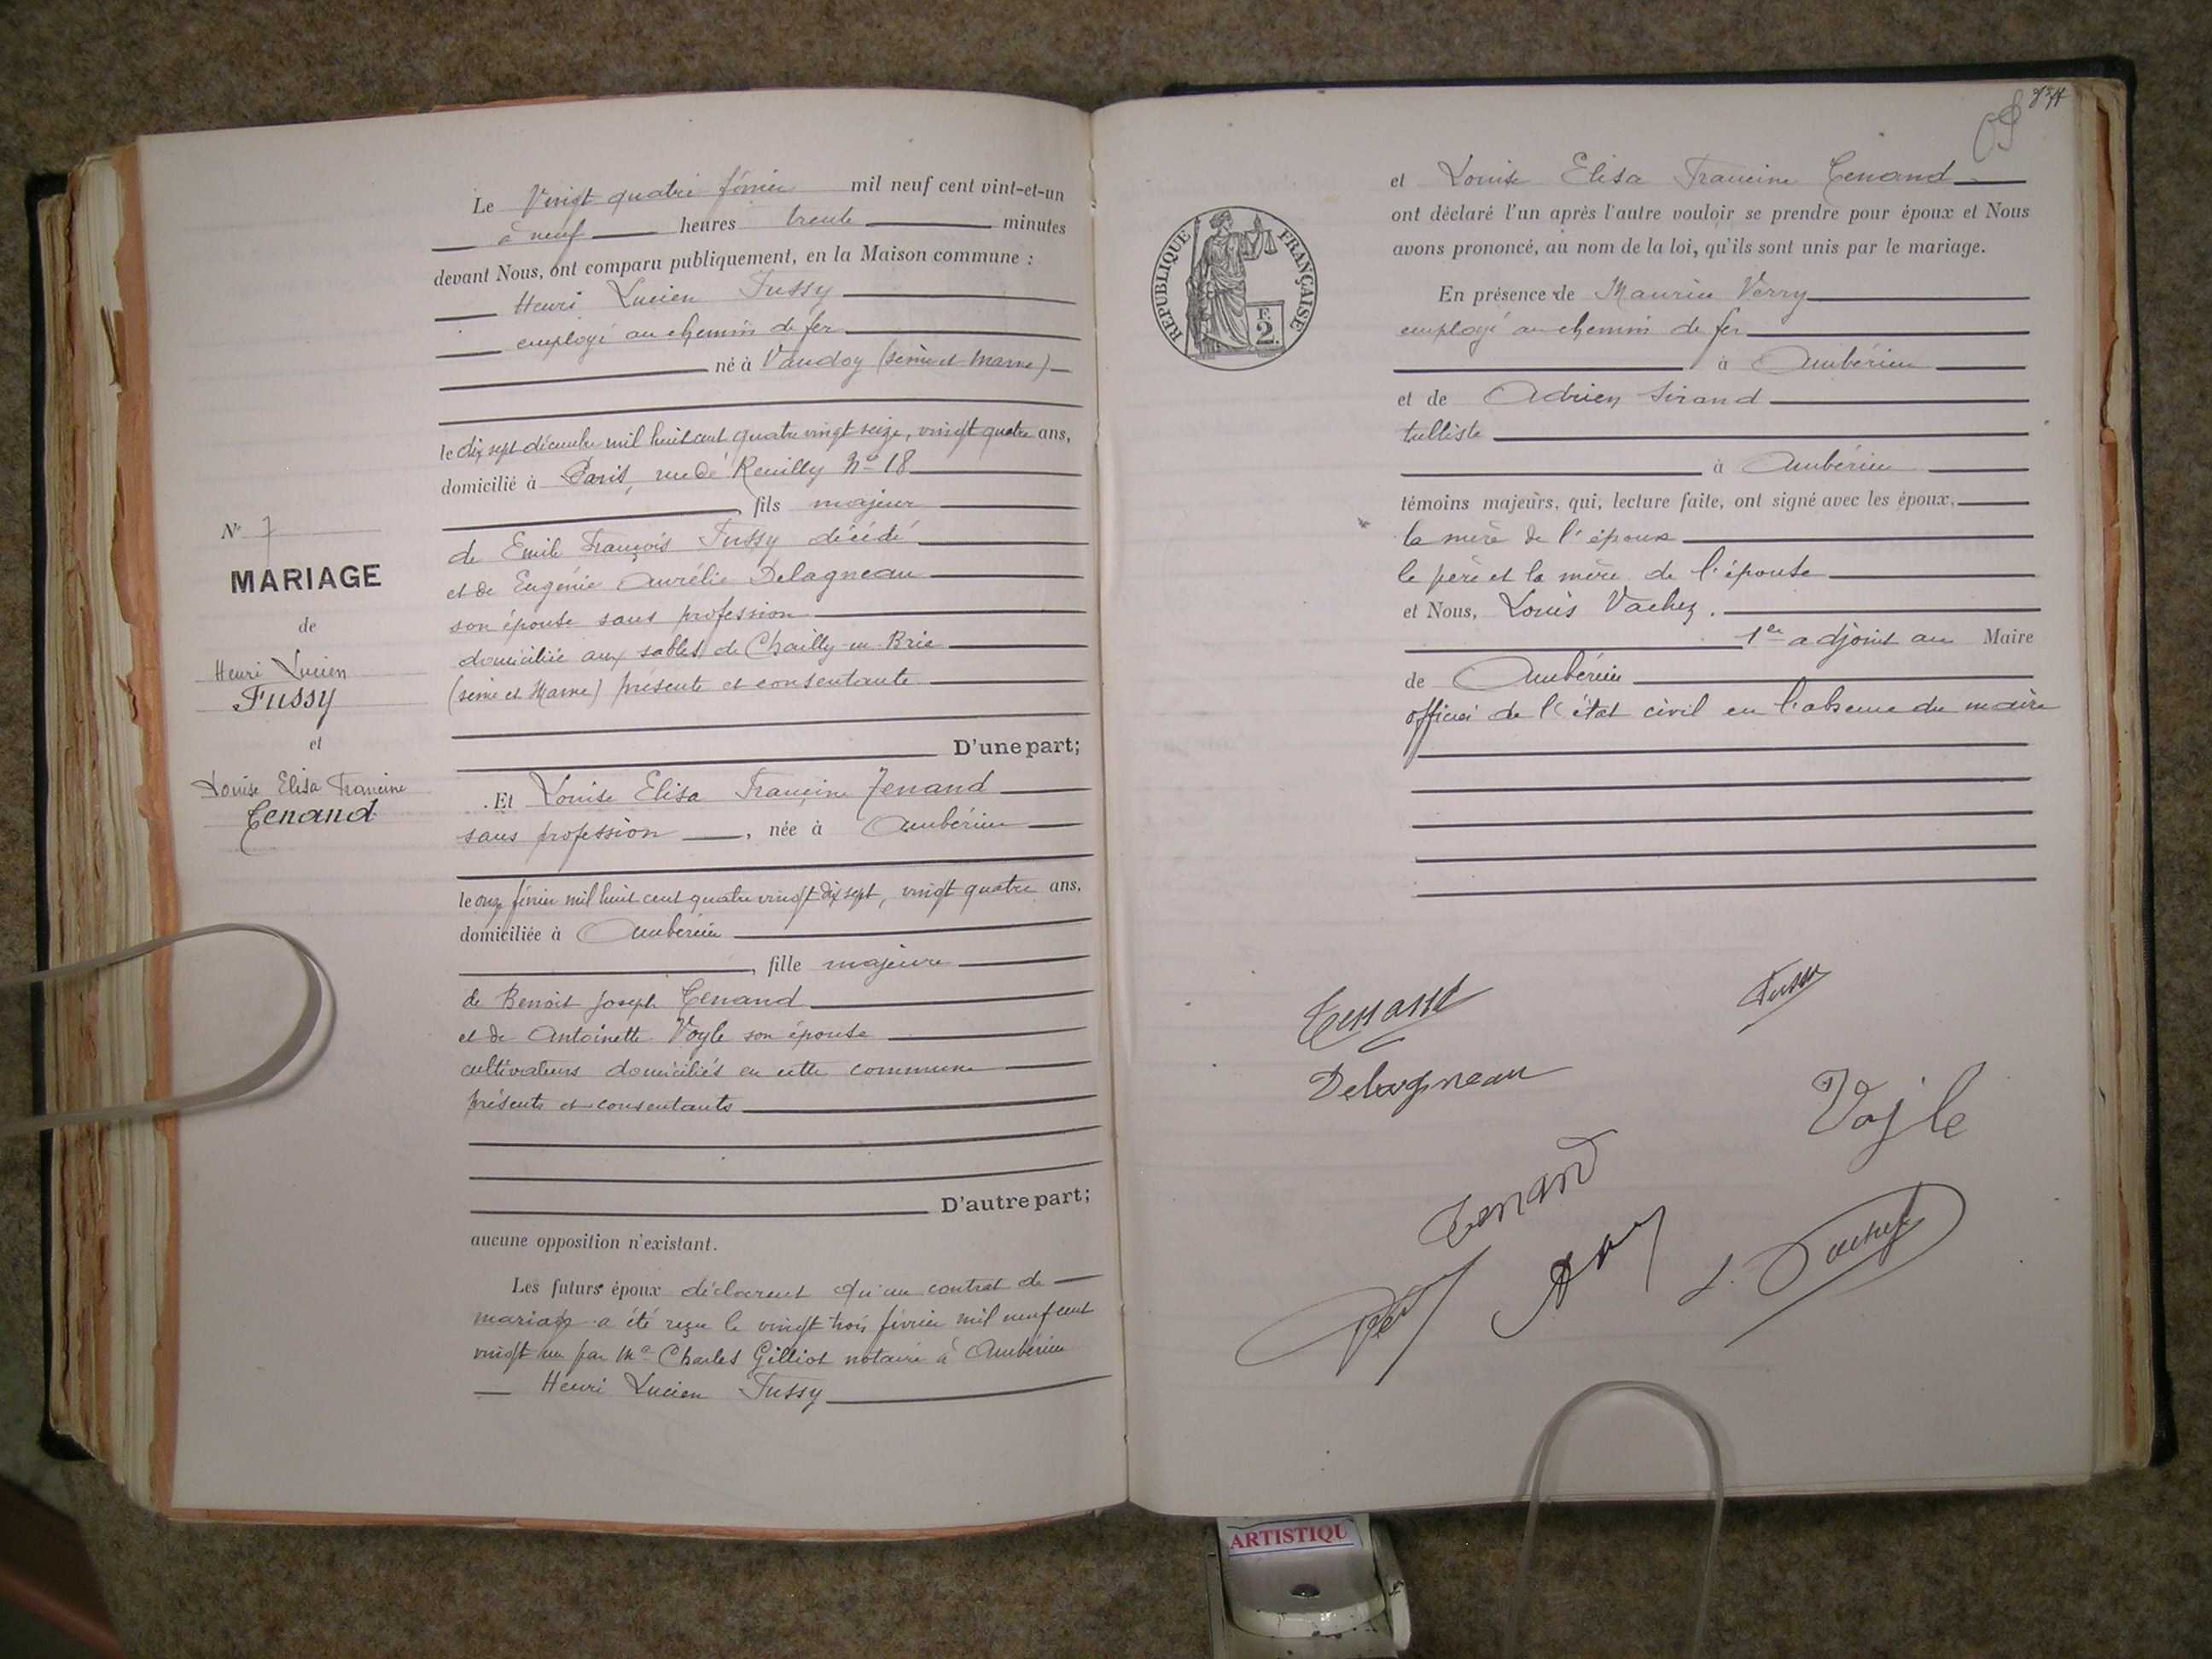 N° 7
MARIAGE
de
Henri Lucien
Fussy
et
Louise Elisa Francine
Tenand
Le Vingt quatre février mil neuf cent vint-et-un
à neuf heures trente minutes
devant Nous, ont comparu publiquement, en la Maison commune :
Henri Lucien Fussy
employé au chemin de fer
né à Vaudoy (seine et Marne)
le dix sept décembre mil huit cent quatre vingt seize, vingt quatre ans,
domicilié à Paris, rue de Reuilly N° 18
, fils majeur
de Emile François Fussy décédé
et de Eugénie Aurélie Delagneau
son épouse sans profession
domiciliée aux sables de Chailly-en-Brie
(seine et Marne) présente et consentante
D'une part;
Et Louise Elisa Francine Tenand
sans profession , née à Ambérieu
le onze février mil huit cent quatre vingt dix sept, vingt quatre ans,
domiciliée à Ambérieu
, fille majeure
de Benoit Joseph Tenand
et de Antoinette Vogle son épouse
cultivateurs domiciliés en cette commune
présents et consentants
D'autre part;
aucune opposition n'existant.
Les futurs époux déclarent qu'un contrat de
mariage a été reçu le vingt trois février mil neuf cent
vingt un par Me Charles Gilliot notaire à Ambérieu
Henri Lucien Fussy
et Louise Elisa Francine Tenand
ont déclaré l'un après l'autre vouloir se prendre pour époux et Nous
avons prononcé, au nom de la loi, qu'ils sont unis par le mariage.
RÉPUBLIQUE FRANÇAISE
F.
2.
En présence de Maurice Verry
employé au chemin de fer
à Ambérieu
et de Adrien Sirand
tulliste
à Ambérieu
témoins majeurs, qui, lecture faite, ont signé avec les époux,
la mère de l'époux
le père et la mère de l'épouse
et Nous, Louis Vachez.
1er adjoint au Maire
de Ambérieu
officier de l'état civil en l'absence du maire
Tenand
Fussy
Delagneau
Vogle
Tenand
L. Vachez
ARTISTIQU